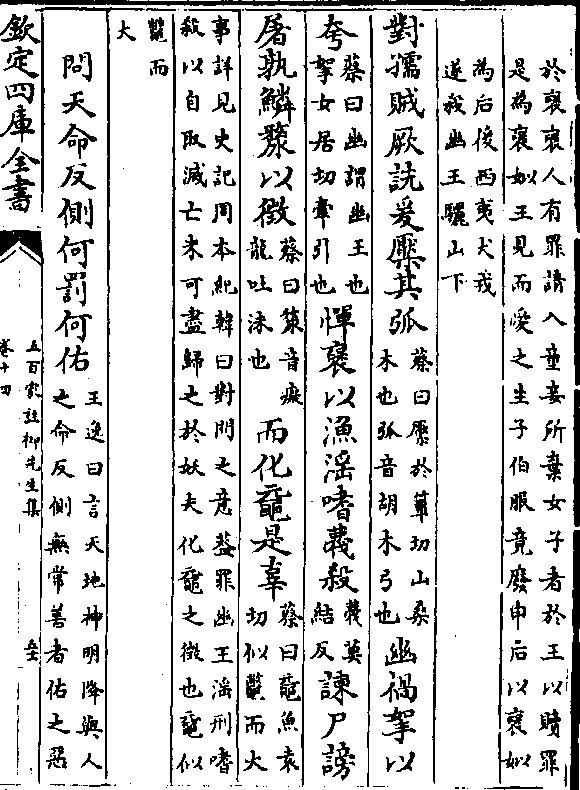 於褒褒人有罪請入童妾所棄女子者於王以贖罪
是為褒姒王見而愛之生子伯服竟廢申后以褒姒
為后後西夷犬戎
遂殺幽王驪山下
對孺賊厥詵爰檿其弧
蔡曰檿於簟切山桑
木也弧音胡木弓也
幽禍挐以
夸
蔡曰幽謂幽王也
挐女居切牽引也
憚褒以漁淫嗜薎殺
薎莫
結反
諫尸謗
屠孰鱗漦以徵
蔡曰漦音癡
龍吐沫也
而化黿是辜
蔡曰黿魚袁
切似鼈而大
事詳見史記周本紀韓曰對問之意蓋罪幽王淫刑嗜
殺以自取滅亡未可盡歸之於妖夫化黿之徵也黿似
鼈而
大
問天命反側何罰何佑
王逸曰言天地神明降與人
之命反側無常善者佑之惡
欽定四庫全書
五百家註柳先生集
卷十四